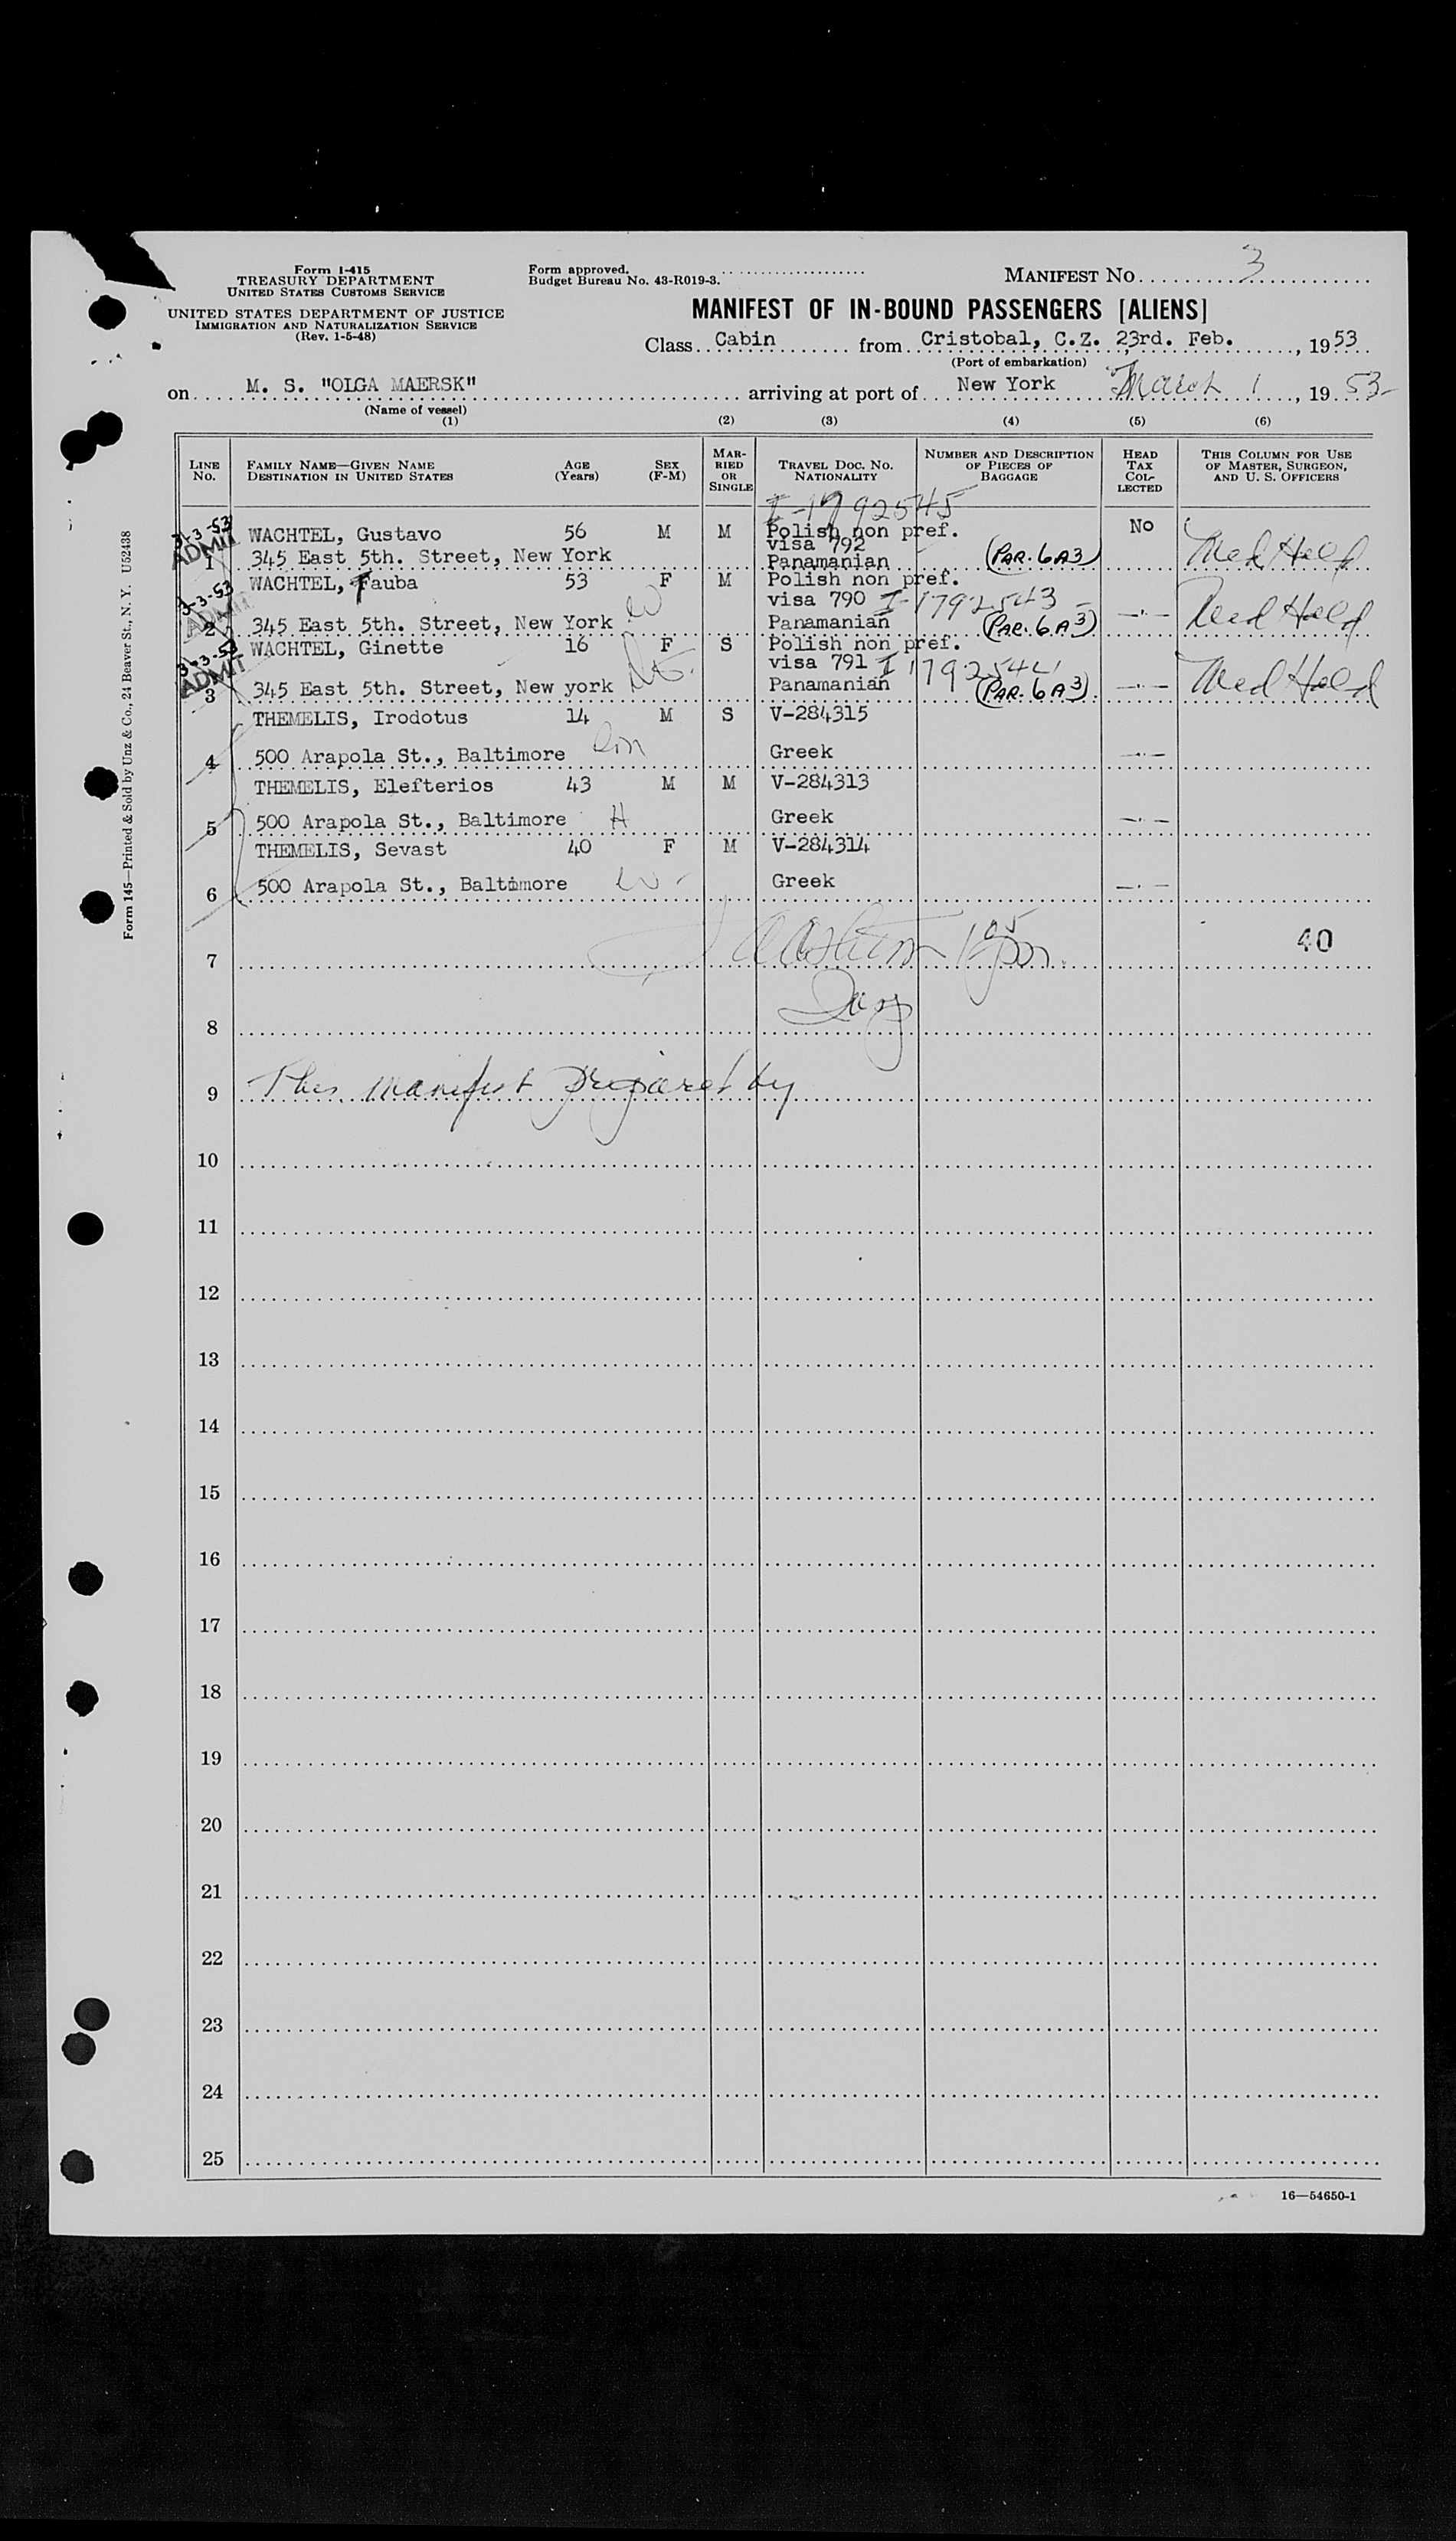 Form I-415
TREASURY DEPARTMENT
UNITED STATES CUSTOMS SERVICE
UNITED STATES DEPARTMENT OF JUSTICE
IMMIGRATION AND NATURALIZATION SERVICE
(Rev. 1-5-48)
Form approved.
Budget Bureau No. 43-R019-3.
MANIFEST No. 3
MANIFEST OF IN-BOUND PASSENGERS [ALIENS]
Class Cabin from Cristobal, C.Z. 23rd. Feb., 1953
(Port of embarkation)
on M. S. "OLGA MAERSK" arriving at port of New York March 1, 1953
(Name of vessel)
(1) (2) (3) (4) (5) (6)
LINE No. FAMILY NAME—GIVEN NAME DESTINATION IN UNITED STATES AGE (Years) SEX (F-M) MARRIED OR SINGLE TRAVEL DOC. No. NATIONALITY NUMBER AND DESCRIPTION OF PIECES OF BAGGAGE HEAD TAX COLLECTED THIS COLUMN FOR USE OF MASTER, SURGEON, AND U. S. OFFICERS
I-1792545
3-3-53 WACHTEL, Gustavo 56 M M Polish non pref. No
ADMIT visa 792 Med Held
1 345 East 5th. Street, New York Panamanian (PAR. 6A3)
WACHTEL, Fauba 53 F M Polish non pref.
3-3-53 visa 790 I-1792543
ADMIT Med Held
2 345 East 5th. Street, New York W Panamanian (PAR. 6A3) —.—
3-3-53 WACHTEL, Ginette 16 F S Polish non pref.
ADMIT visa 791 I 1792544 Med Held
3 345 East 5th. Street, New york Panamanian (PAR. 6A3). —.—
THEMELIS, Irodotus 14 M S V-284315
4 500 Arapola St., Baltimore Greek —.—
THEMELIS, Elefterios 43 M M V-284313
5 500 Arapola St., Baltimore H Greek —.—
THEMELIS, Sevast 40 F M V-284314
6 500 Arapola St., Baltimore W Greek —.—
7 40
8
9 This manifest prepared by
10
11
12
13
14
15
16
17
18
19
20
21
22
23
24
25
16—54650-1
Form 145—Printed & Sold by Unz & Co., 24 Beaver St., N. Y. U52438